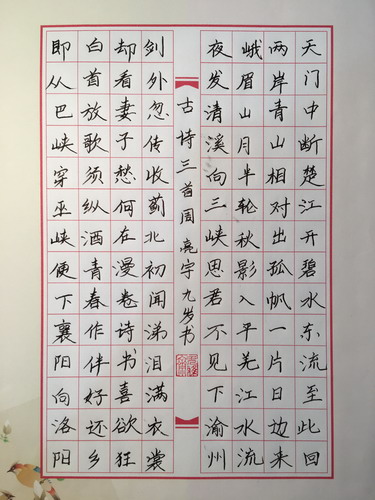 天门中断楚江开碧水东流至此回
两岸青山相对出孤帆一片日边来
峨眉山月半轮秋影入平羌江水流
夜发清溪向三峡思君不见下渝州
古诗三首周亮宇九岁书
剑外忽传收蓟北初闻涕泪满衣裳
却看妻子愁何在漫卷诗书喜欲狂
白首放歌须纵酒青春作伴好还乡
即从巴峡穿巫峡便下襄阳向洛阳